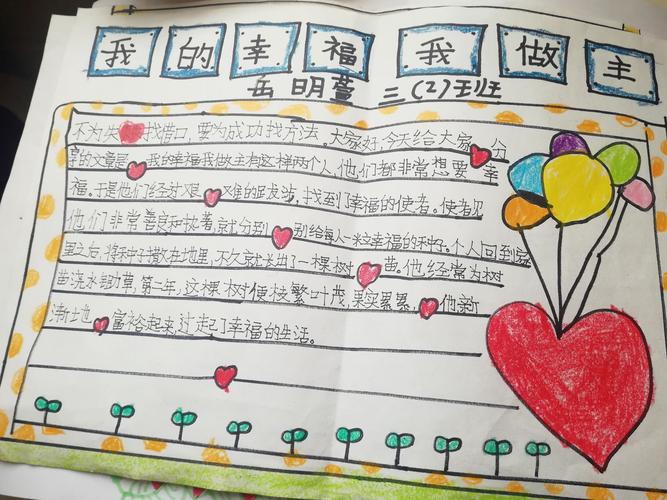 我的幸福我做主
岳明萱 三(2)班
不为失找借口,要为成功找方法。大家好,今天给大家分
享的文章是我的幸福我做主有这样两个人,他们都非常想要幸
福。于是他们经过艰难的跋涉,找到了幸福的使者。使者见
他们非常善良和执着,就分别别给每人一粒幸福的种子。个人回到家
里之后,将种子撒在地里,不久就长出了一棵树苗。他经常为树
苗浇水锄草,第二年,这棵树便枝繁叶茂,果实累累,他渐
渐地富裕起来,过起了幸福的生活。